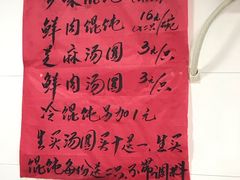 鲜肉馄饨 16元/碗
芝麻汤圆 3元/只
鲜肉汤圆 3元/只
冷馄饨另加1元
生买汤圆买十送一,生买
馄饨每份送二只,不带调料